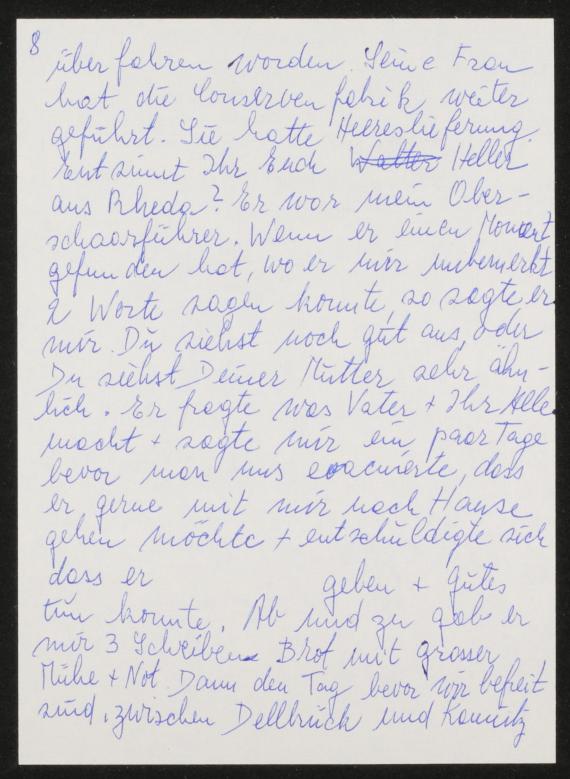 8
überfahren worden. Seine Frau
hat die Conservenfabrik weiter
geführt. Sie hatte Heereslieferung.
Entsinnt Ihr Euch Walter Heller
aus Rheda? Er war mein Ober-
schaarführer. Wenn er einen Moment
gefunden hat, wo er mir unbemerkt
2 Worte sagen konnte, so sagte er
mir. Du siehst noch gut aus, oder
Du siehst Deiner Mutter sehr ähn-
lich. Er fragte was Vater + Ihr Alle
macht + sagte mir ein paar Tage
bevor man uns evacuierte, dass
er gerne mit mir nach Hause
gehen möchte + entschuldigte sich
dass er geben + gutes
tun konnte. Ab und zu gab er
mir 3 Scheiben Brot mit grosser
Mühe + Not. Dann den Tag bevor wir befreit
sind, zwischen Dellbrück und